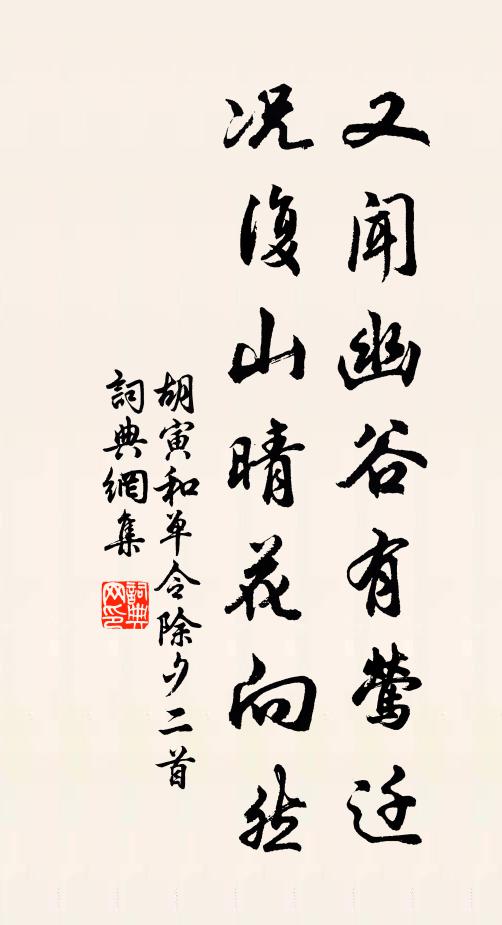 又闻幽谷有莺迁
况复山晴花向然
胡寅和单令除夕二首
詞典網集
詞典网印